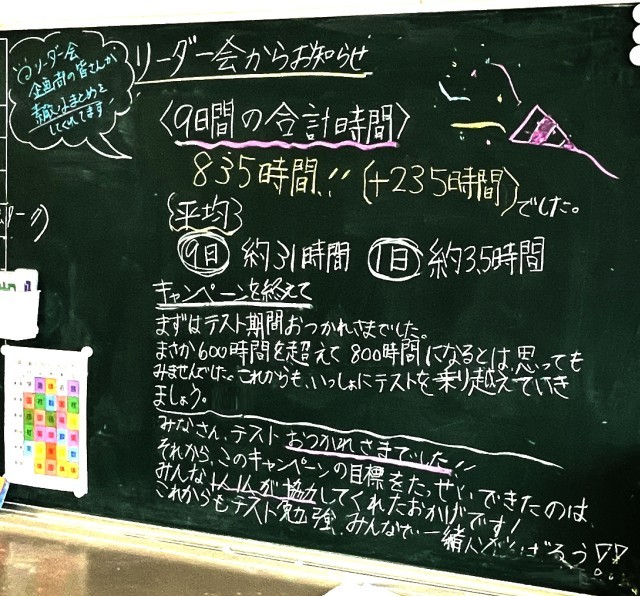 リーダー会
企画部の皆さんが
素敵なまとめを
してくれてます
リーダー会からお知らせ
〈9日間の合計時間〉
835時間!!(+235時間)でした。
{平均}
9日 約31時間 1日 約3.5時間
キャンペーンを終えて
まずはテスト期間おつかれさまでした。
まさか600時間を超えて800時間になるとは、思っても
みませんでした。これからも、いっしょにテストを乗り越えていき
ましょう。
みなさん、テストおつかれさまでした!!
それから、このキャンペーンの目標をたっせいできたのは、
みんな1人1人が協力してくれたおかげです!
これからもテスト勉強、みんなで一緒にがんばろう!!